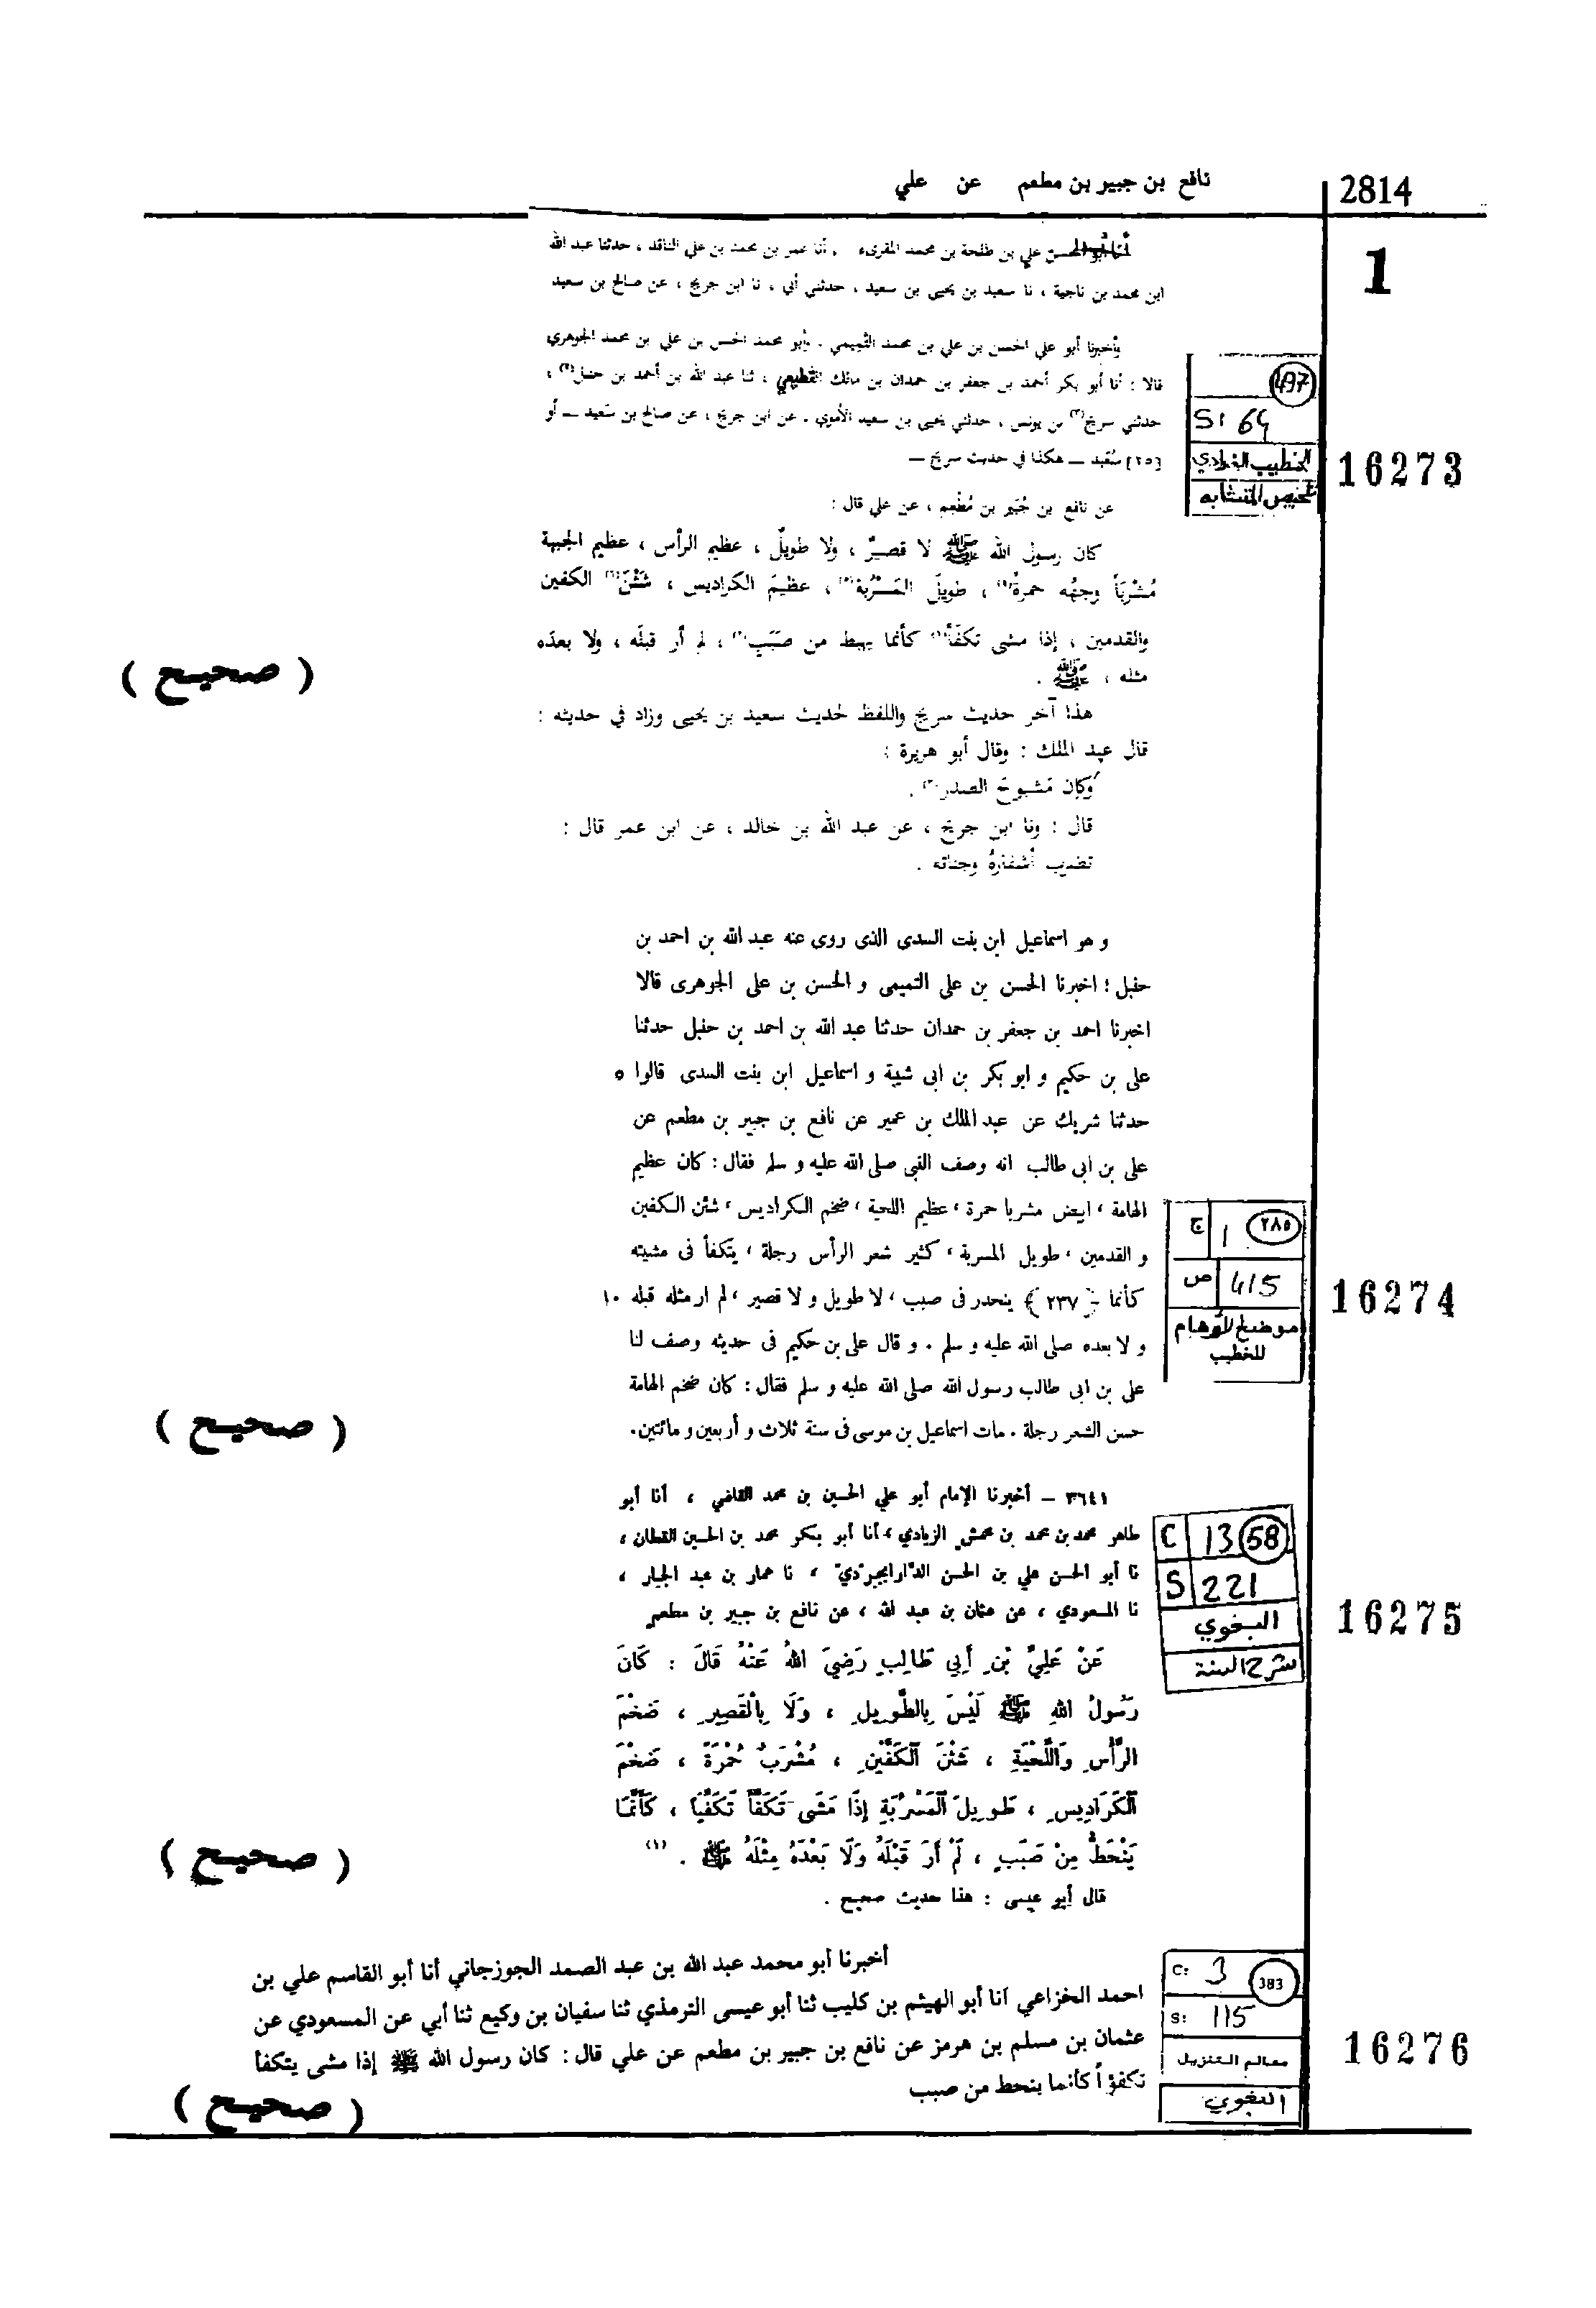 2814
نافع بن جبير بن مطعم عن علي
1
أنا أبو الحسن علي بن طلحة بن محمد المقرىء ، أنا عمر بن محمد بن علي الناقد ، حدثنا عبد الله
ابن محمد بن ناجية ، نا سعيد بن يحيى بن سعيد ، حدثني أبي ، نا ابن جريج ، عن صالح بن سعيد
وأخبرنا أبو علي الحسن بن علي بن محمد التميمي . وأبو محمد الحسن بن علي بن محمد الجوهري
قالا : أنا أبو بكر أحمد بن جعفر بن حمدان بن مالك القطيعي ، ثنا عبد الله بن أحمد بن حنبل(٢) ،
حدثني سريج(٣) بن يونس ، حدثني يحيى بن سعيد الأموي . عن ابن جريج ، عن صالح بن سعيد ــ أو
[٢٥] سُعَيد ــ هكذا في حديث سريج ــ
497
S: 64
الخطيب البغدادي
تلخيص المتشابه
16273
عن نافع بن جُبَير بن مُطْعِم ، عن علي قال :
كان رسول الله ﷺ لا قصيرٌ ، ولا طويلٌ ، عظيم الرأس ، عظيم الجبهة
مُشْرَباً وجهُه حمرةً ، طويلَ المَسْرُبة ، عظيمَ الكراديس ، شَثْنَ الكفين
والقدمين ، إذا مشى تكفّأ كأنما يهبط من صَبَبٍ ، لم أر قبلَه ، ولا بعدَه
مثله ، ﷺ .
( صحيح )
هذا آخر حديث سريج واللفظ لحديث سعيد بن يحيى وزاد في حديثه :
قال عبد الملك : وقال أبو هريرة :
وكان مَشبوحَ الصدر .
قال : ونا ابن جريج ، عن عبد الله بن خالد ، عن ابن عمر قال :
أشفارُهُ
و هو اسماعيل ابن بنت السدى الذى روى عنه عبد الله بن احمد بن
حنبل ؛ اخبرنا الحسن بن على التميمى و الحسن بن على الجوهرى قالا
اخبرنا احمد بن جعفر بن حمدان حدثنا عبد الله بن احمد بن حنبل حدثنا
على بن حكيم و ابو بكر بن ابى شيبة و اسماعيل ابن بنت السدى قالوا ٥
حدثنا شريك عن عبد الملك بن عمير عن نافع بن جبير بن مطعم عن
على بن ابى طالب انه وصف النبى صلى الله عليه و سلم فقال : كان عظيم
الهامة ، ابيض مشربا حمرة ، عظيم اللحية ، ضخم الكراديس ، شثن الكفين
و القدمين ، طويل المسربة ، كثير شعر الرأس رجلة ، يتكفأ فى مشيته
كأنما { ٢٣٧ } ينحدر فى صبب ، لا طويل و لا قصير ، لم ار مثله قبله ١٠
و لا بعده صلى الله عليه و سلم . و قال على بن حكيم فى حديثه وصف لنا
على بن ابى طالب رسول الله صلى الله عليه و سلم فقال : كان ضخم الهامة
حسن الشعر رجلة . مات اسماعيل بن موسى فى سنة ثلاث و أربعين و مائتين .
٢٨٥
ج 1
ص 415
موضح الأوهام
للخطيب
16274
( صحيح )
٣٦٤١ ــ أخبرنا الإمام أبو علي الحسين بن محمد القاضي ، أنا أبو
طاهر محمد بن محمد بن محمش الزيادي ، أنا أبو بكر محمد بن الحسين القطان ،
نا أبو الحسن علي بن الحسن الدّارابجرديّ ، نا عمار بن عبد الجبار ،
نا المسعودي ، عن عثمان بن عبد الله ، عن نافع بن جبير بن مطعم
عَنْ عَلِيِّ بْنِ أَبِي طَالِبٍ رَضِيَ اللهُ عَنْهُ قَالَ : كَانَ
رَسُولُ اللهِ ﷺ لَيْسَ بِالطَّوِيلِ ، وَلَا بِالْقَصِيرِ ، ضَخْمَ
الرَّأْسِ وَاللِّحْيَةِ ، شَثْنَ الْكَفَّيْنِ ، مُشْرَبُ حُمْرَةً ، ضَخْمَ
الْكَرَادِيسِ ، طَوِيلَ الْمَسْرُبَةِ إِذَا مَشَى تَكَفَّأَ تَكَفِّيًا ، كَأَنَّمَا
يَنْحَطُّ مِنْ صَبَبٍ ، لَمْ أَرَ قَبْلَهُ وَلَا بَعْدَهُ مِثْلَهُ ﷺ . (١)
قال أبو عيسى : هذا حديث صحيح .
C 13 58
S 221
البغوي
شرح السنة
16275
( صحيح )
أخبرنا أبو محمد عبد الله بن عبد الصمد الجوزجاني أنا أبو القاسم علي بن
احمد الخزاعي أنا أبو الهيثم بن كليب ثنا أبو عيسى الترمذي ثنا سفيان بن وكيع ثنا أبي عن المسعودي عن
عثمان بن مسلم بن هرمز عن نافع بن جبير بن مطعم عن علي قال : كان رسول الله ﷺ إذا مشى يتكفأ
تكفؤاً كأنما ينحط من صبب
C: 3 383
S: 115
معالم التنزيل
البغوي
16276
( صحيح )